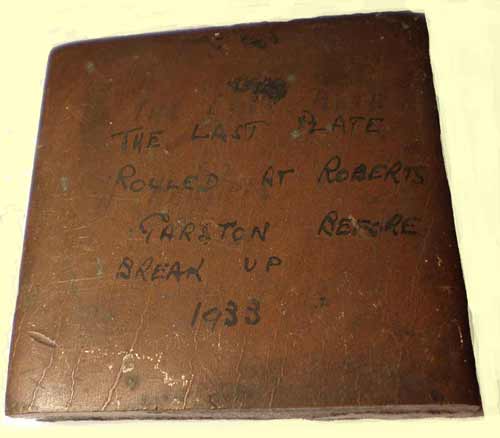 THE LAST PLATE
ROLLED AT ROBERTS
GARSTON BEFORE
BREAK UP
1933